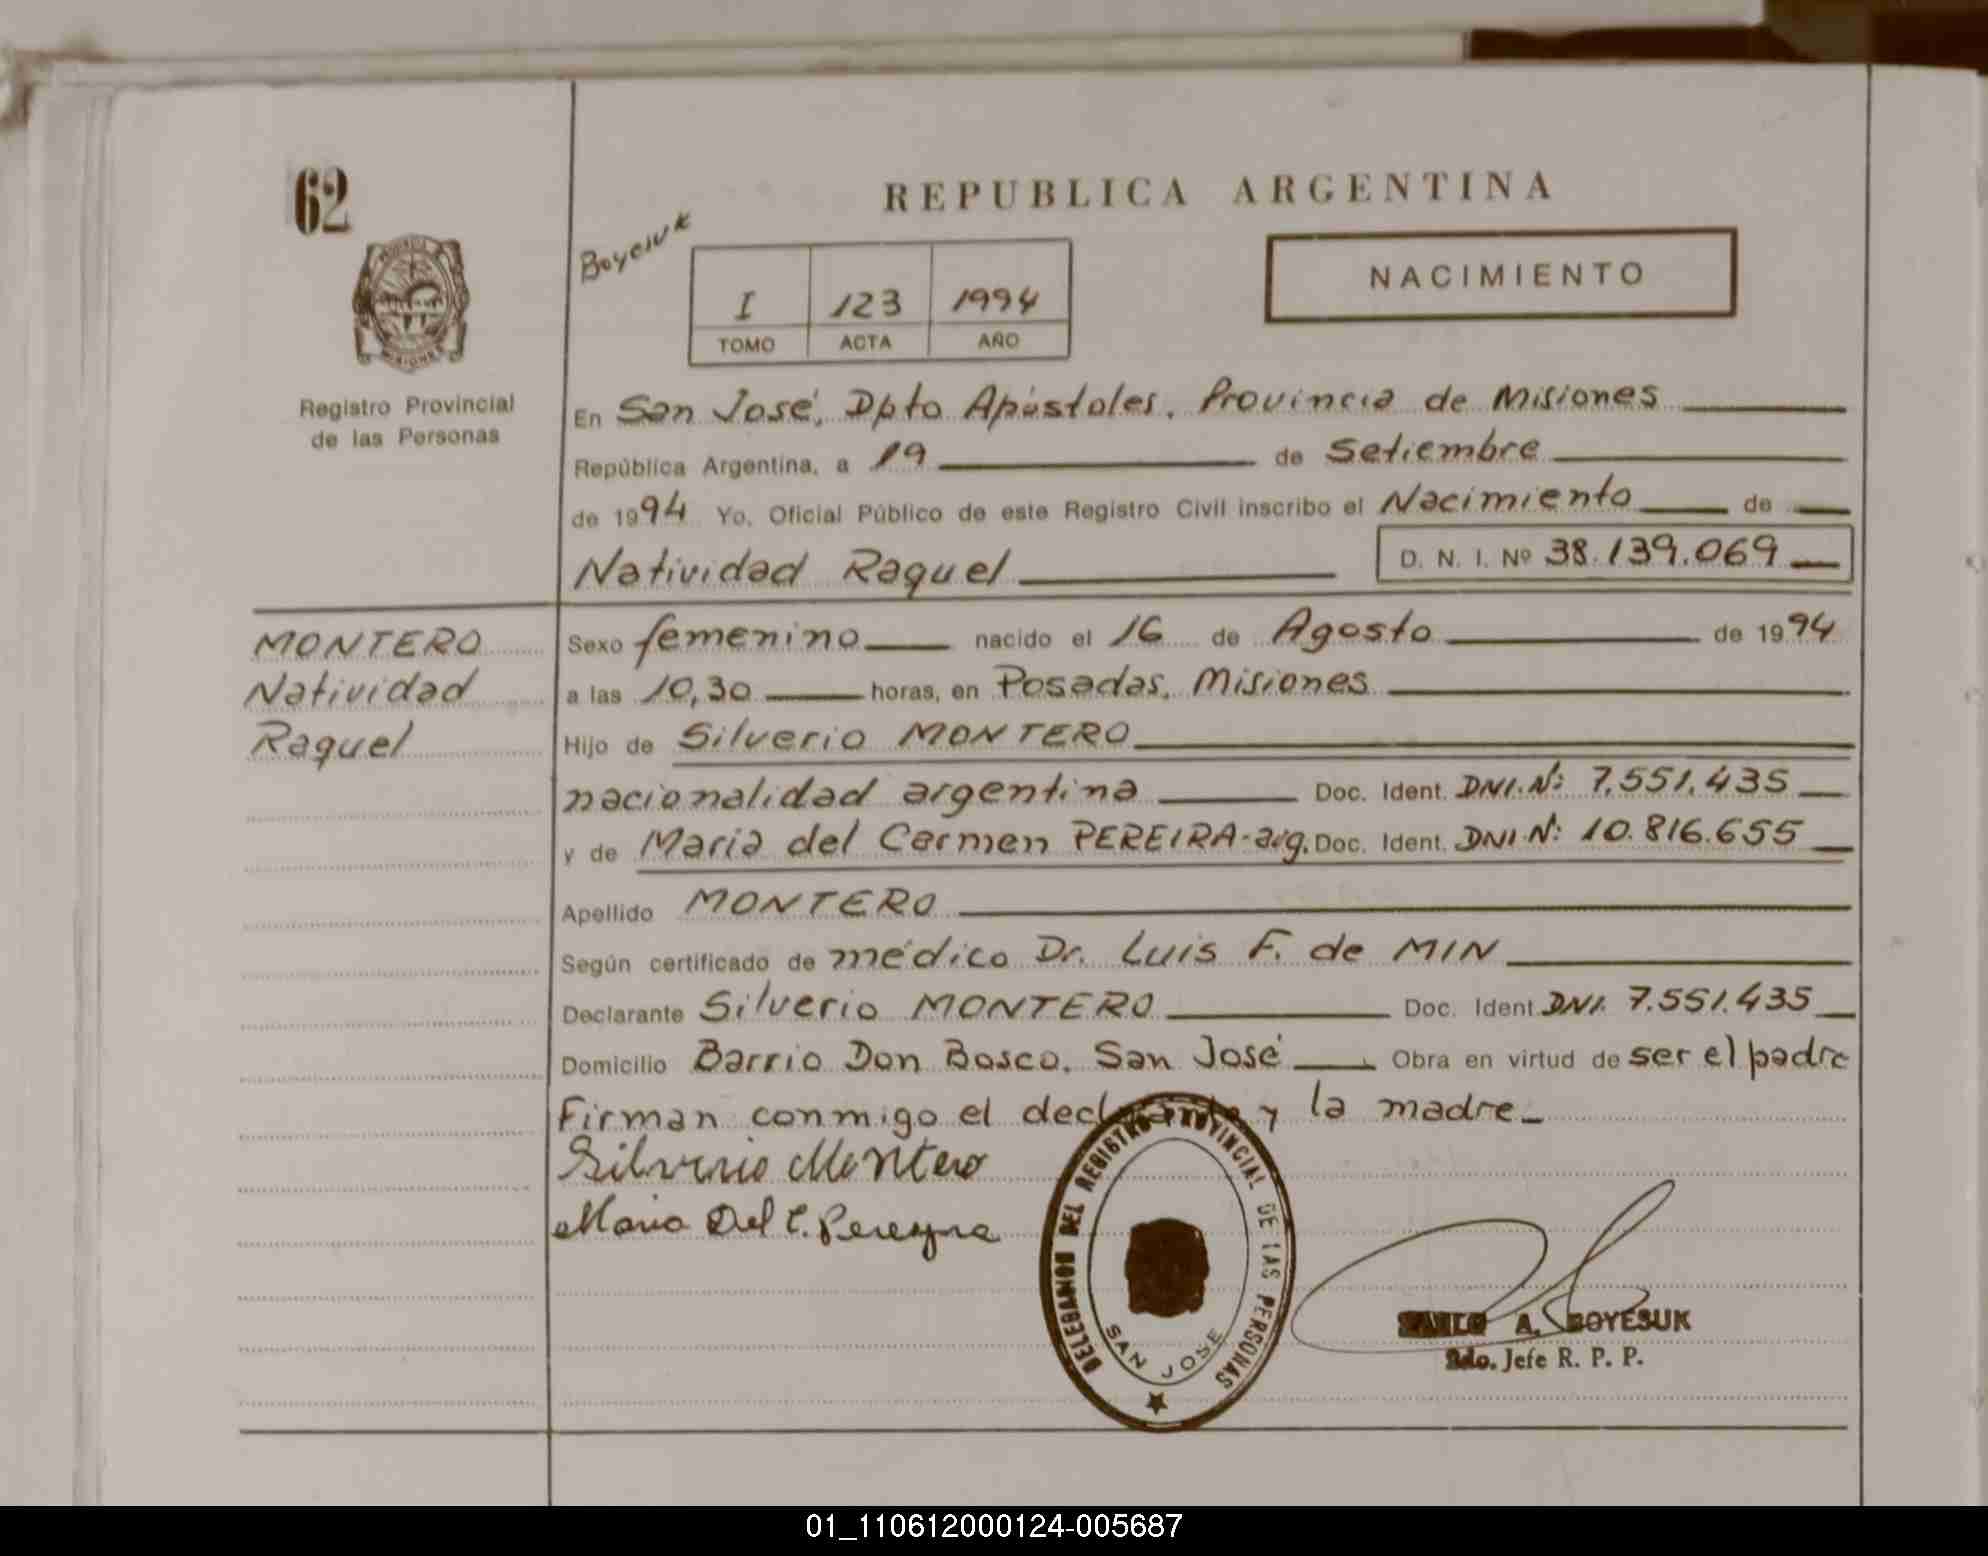 62
REPUBLICA ARGENTINA
Boyesuk
NACIMIENTO
I 123 1994
TOMO ACTA AÑO
MISIONES
Registro Provincial
de las Personas
En San José, Dpto Apóstoles, Provincia de Misiones
República Argentina, a 19 de Setiembre
de 1994 Yo, Oficial Público de este Registro Civil inscribo el Nacimiento de
Natividad Raquel D. N. I. Nº 38.139.069
MONTERO
Natividad
Raquel
Sexo femenino nacido el 16 de Agosto de 1994
a las 10,30 horas, en Posadas, Misiones
Hijo de Silverio MONTERO
nacionalidad argentina Doc. Ident. DNI.Nº: 7.551.435
y de Maria del Carmen PEREIRA-arg. Doc. Ident. DNI.Nº: 10.816.655
Apellido MONTERO
Según certificado de médico Dr. Luis F. de MIN
Declarante Silverio MONTERO Doc. Ident. DNI. 7.551.435
Domicilio Barrio Don Bosco, San José Obra en virtud de ser el padre
Firman conmigo el declarante y la madre
Silverio Montero
Maria Del C. Pereyra
DELEGACION DEL REGISTRO PROVINCIAL DE LAS PERSONAS
SAN JOSE
PABLO A. BOYESUK
2do. Jefe R. P. P.
01_110612000124-005687